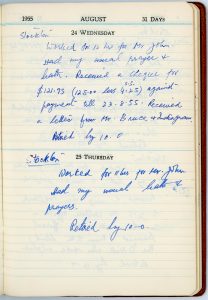 1955 AUGUST 31 DAYS
24 WEDNESDAY
Stockton
Worked for 12 hrs for Mr. John
Had my usual prayer &
bath. Received a cheque for
S.S.
$121.75 (125.00 less 3.25) against
payment till 23.8.55. Received
a letter from Mr. Bruce &
Retired by 10.0
25 THURSDAY
Stockton
Worked for 9 hrs for Mr. John
Had my usual bath &
prayers.
Retired by 10.0.